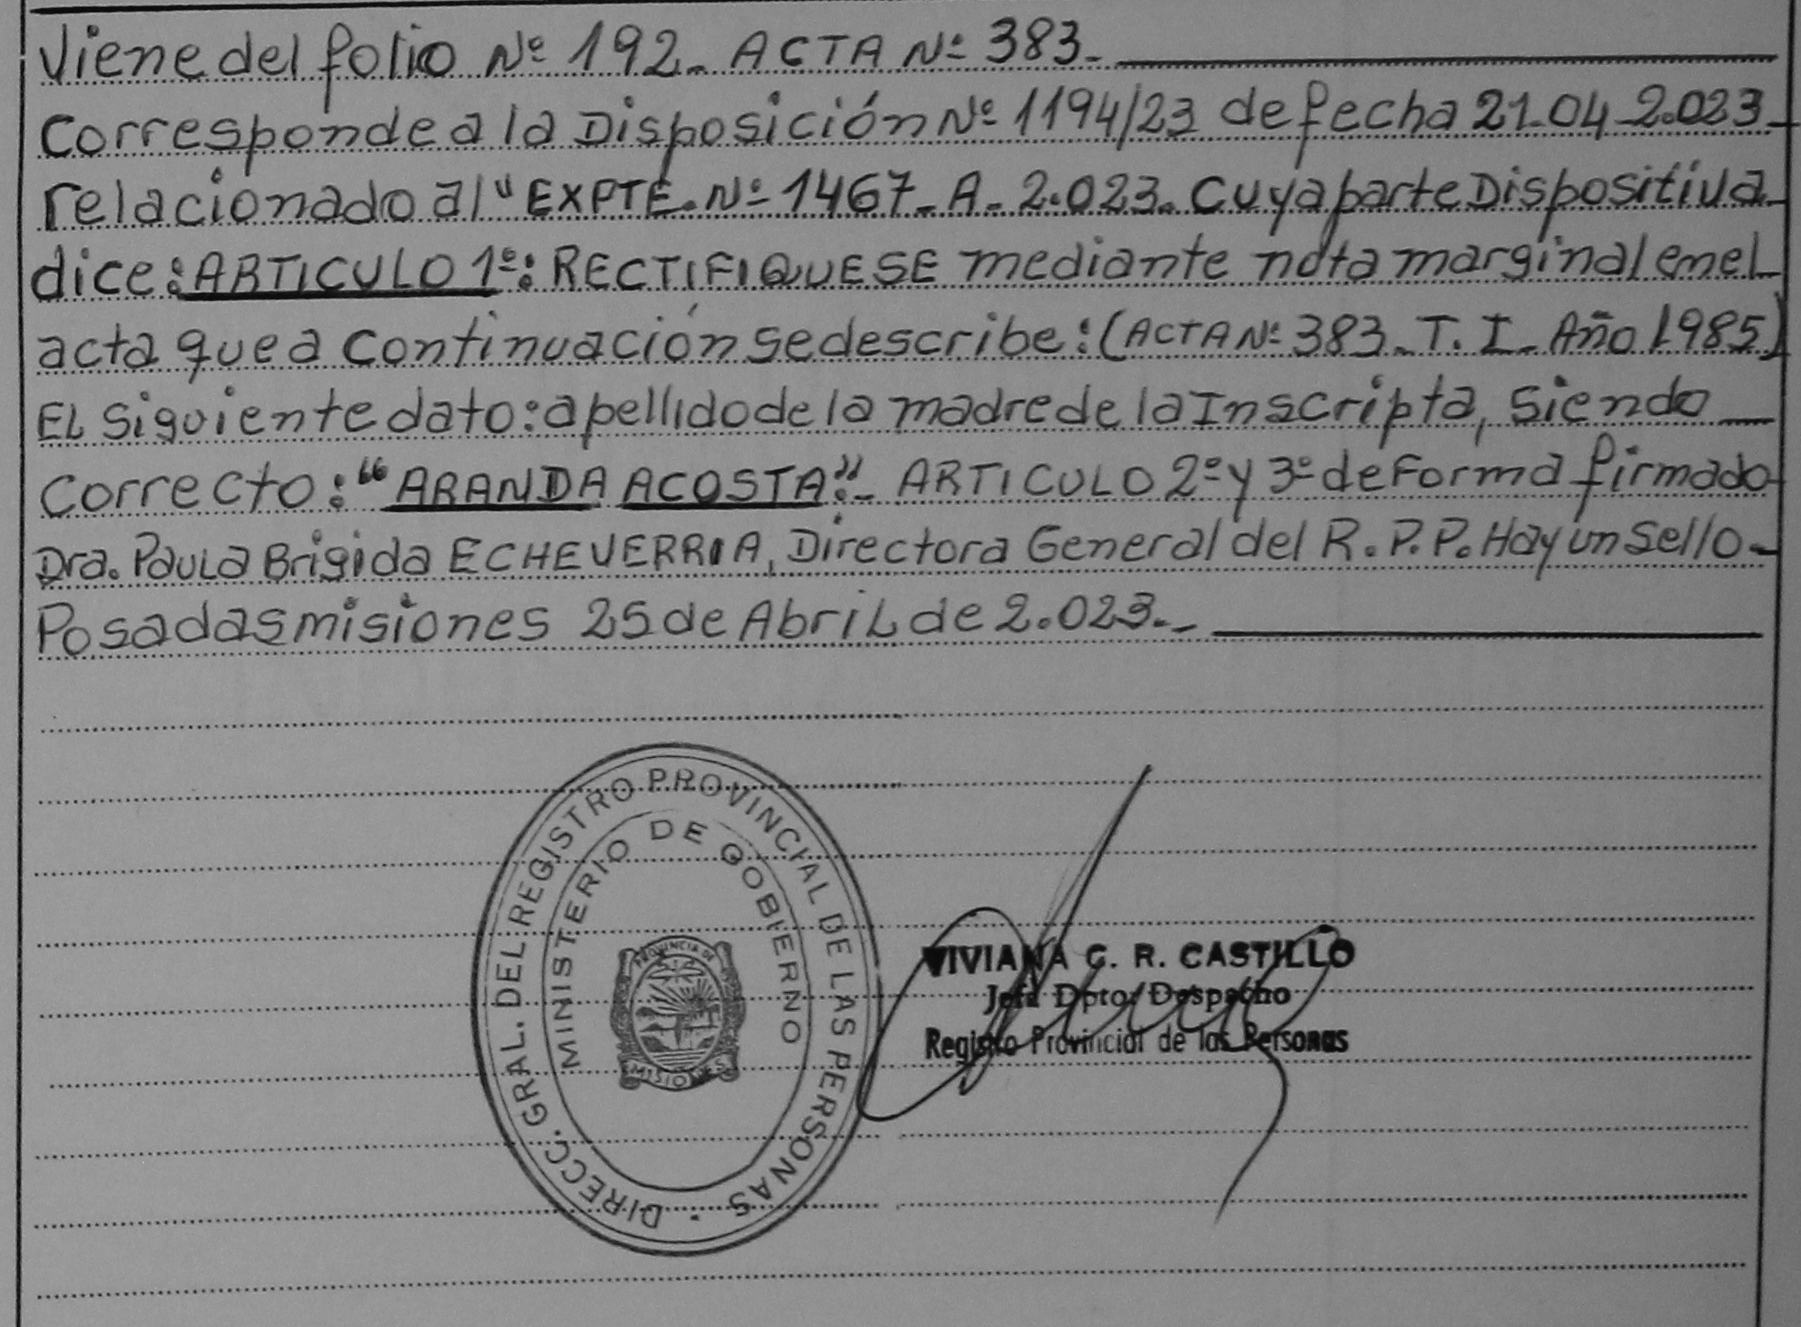 Viene del folio Nº 192_ ACTA Nº 383_
Corresponde a la Disposición Nº 1194/23 de fecha 21_04_2.023_
relacionado al "EXPTE. Nº 1467_A_2.023. Cuya parte Dispositiva
dice: ARTICULO 1º: RECTIFIQUESE mediante nota marginal en el
acta que a continuación se describe: (ACTA Nº 383_T. I_Año 1985)
EL siguiente dato: apellido de la madre de la Inscripta, siendo
Correcto: "ARANDA ACOSTA"._ ARTICULO 2º y 3º de Forma firmado
Dra. Paula Brigida ECHEVERRIA, Directora General del R.P.P. Hay un Sello_
Posadas misiones 25 de Abril de 2.023._
DIRECC. GRAL. DEL REGISTRO PROVINCIAL DE LAS PERSONAS
MINISTERIO DE GOBIERNO
PROVINCIA DE
MISIONES
VIVIANA C. R. CASTILLO
Jefa Dpto. Despacho
Registro Provincial de las Personas